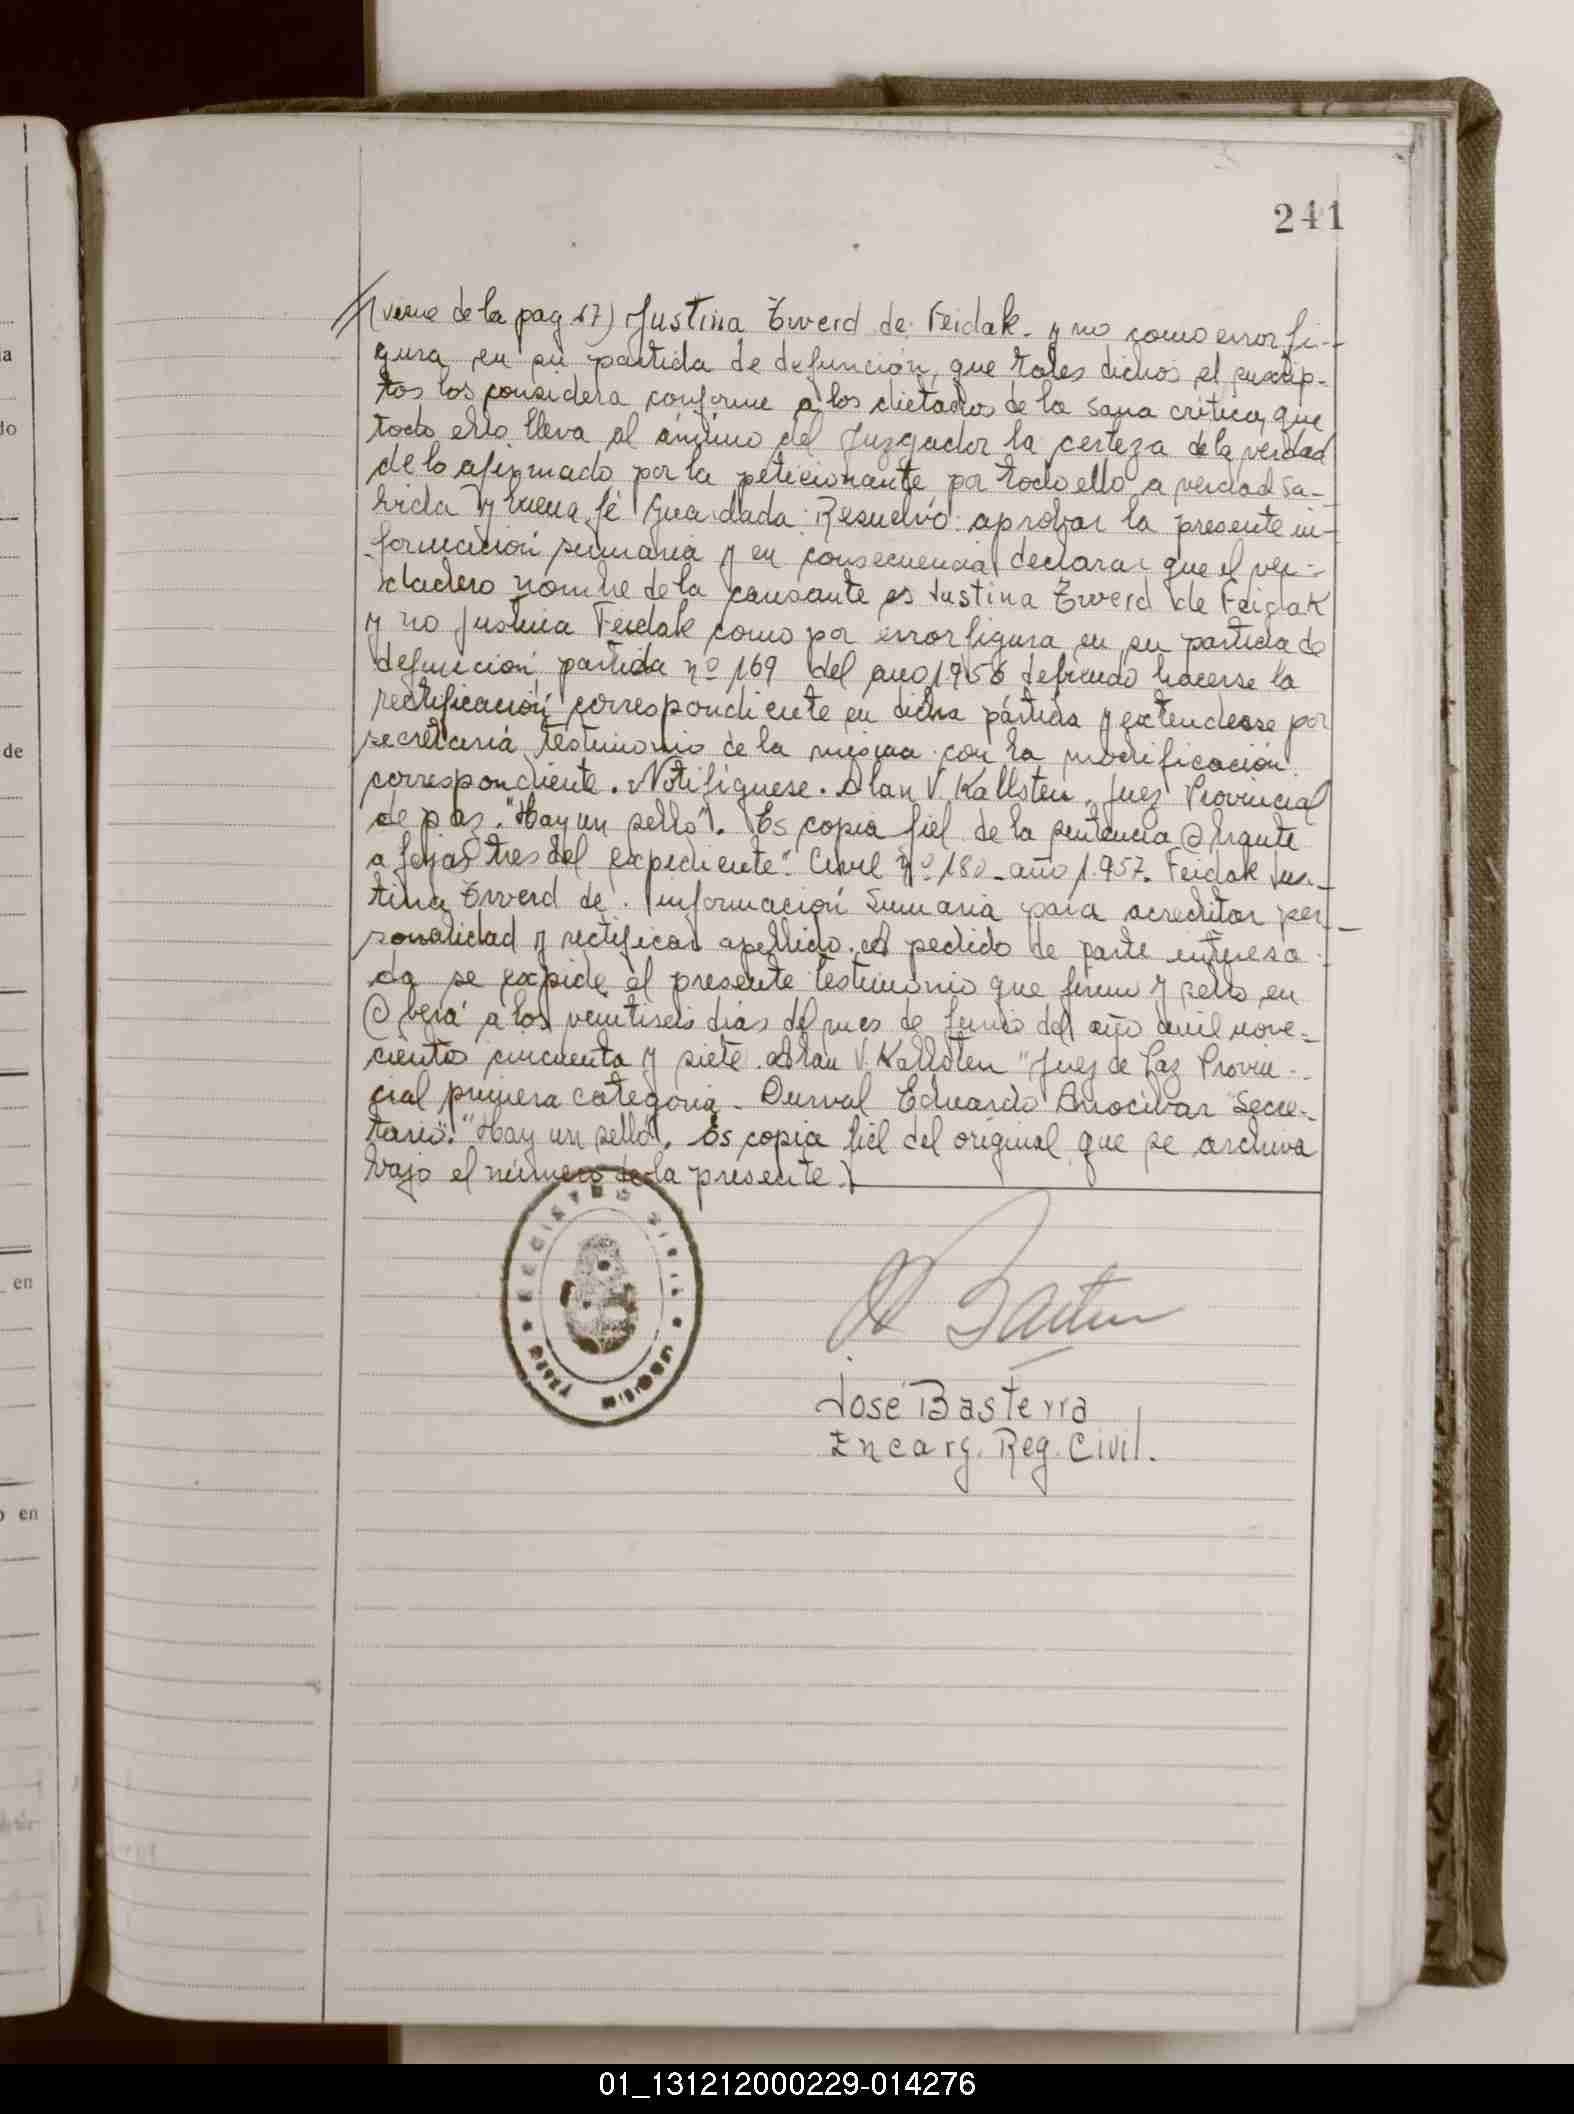 241
(viene de la pag 17) Justina Zwerd de Feidak. y no como error fi-
gura en su partida de defunción, que tales dichos el suscrip-
tos los considera conforme a los dictados de la sana crítica, que
todo ello lleva al ánimo del Juzgador la certeza de la verdad
de lo afirmado por la peticionante por todo ello a verdad sa-
bida y buena fé Guardada Resuelvo: aprobar la presente in-
formación sumaria y en consecuencia declarar que el ver-
dadero nombre de la causante es Justina Zwerd de Feidak
y no Justina Feidak como por error figura en su partida de
defunción, partida nº 169 del año 1956 debiendo hacerse la
rectificación correspondiente en dicha partida y extenderse por
secretaría testimonio de la misma con la modificación
correspondiente. Notifíquese. Alan V. Kallsten, Juez Provincial
de paz. "Hay un sello". Es copia fiel de la sentencia obrante
a fojas tres del expediente: Civil nº 180 - año 1.957. Feidak Jus-
tina Zwerd de. Información Sumaria para acreditar per-
sonalidad y rectificar apellido. A pedido de parte interesa-
da se expide el presente testimonio que firmo y sello en
Oberá a los veintiseis días del mes de Junio del año mil nove-
ciento cincuenta y siete. Alan V. Kallsten "Juez de Paz Provin-
cial primera categoria - Durval Eduardo Arrocivar "Secre-
tario". "Hay un sello". Es copia fiel del original que se archiva
bajo el número de la presente.
José Basterra
Encarg. Reg. Civil.
de
en
en
01_131212000229-014276